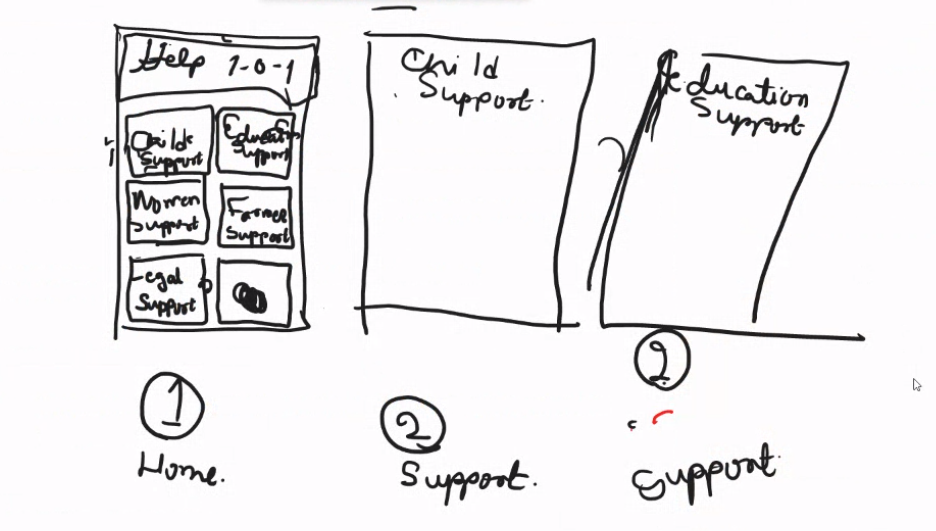 Help 1-0-1
Child
Support
Education
Support
Women
Support
Farmer
Support
Legal
Support
1
Home.
Child
Support.
2
Support.
Education
Support
2
Support